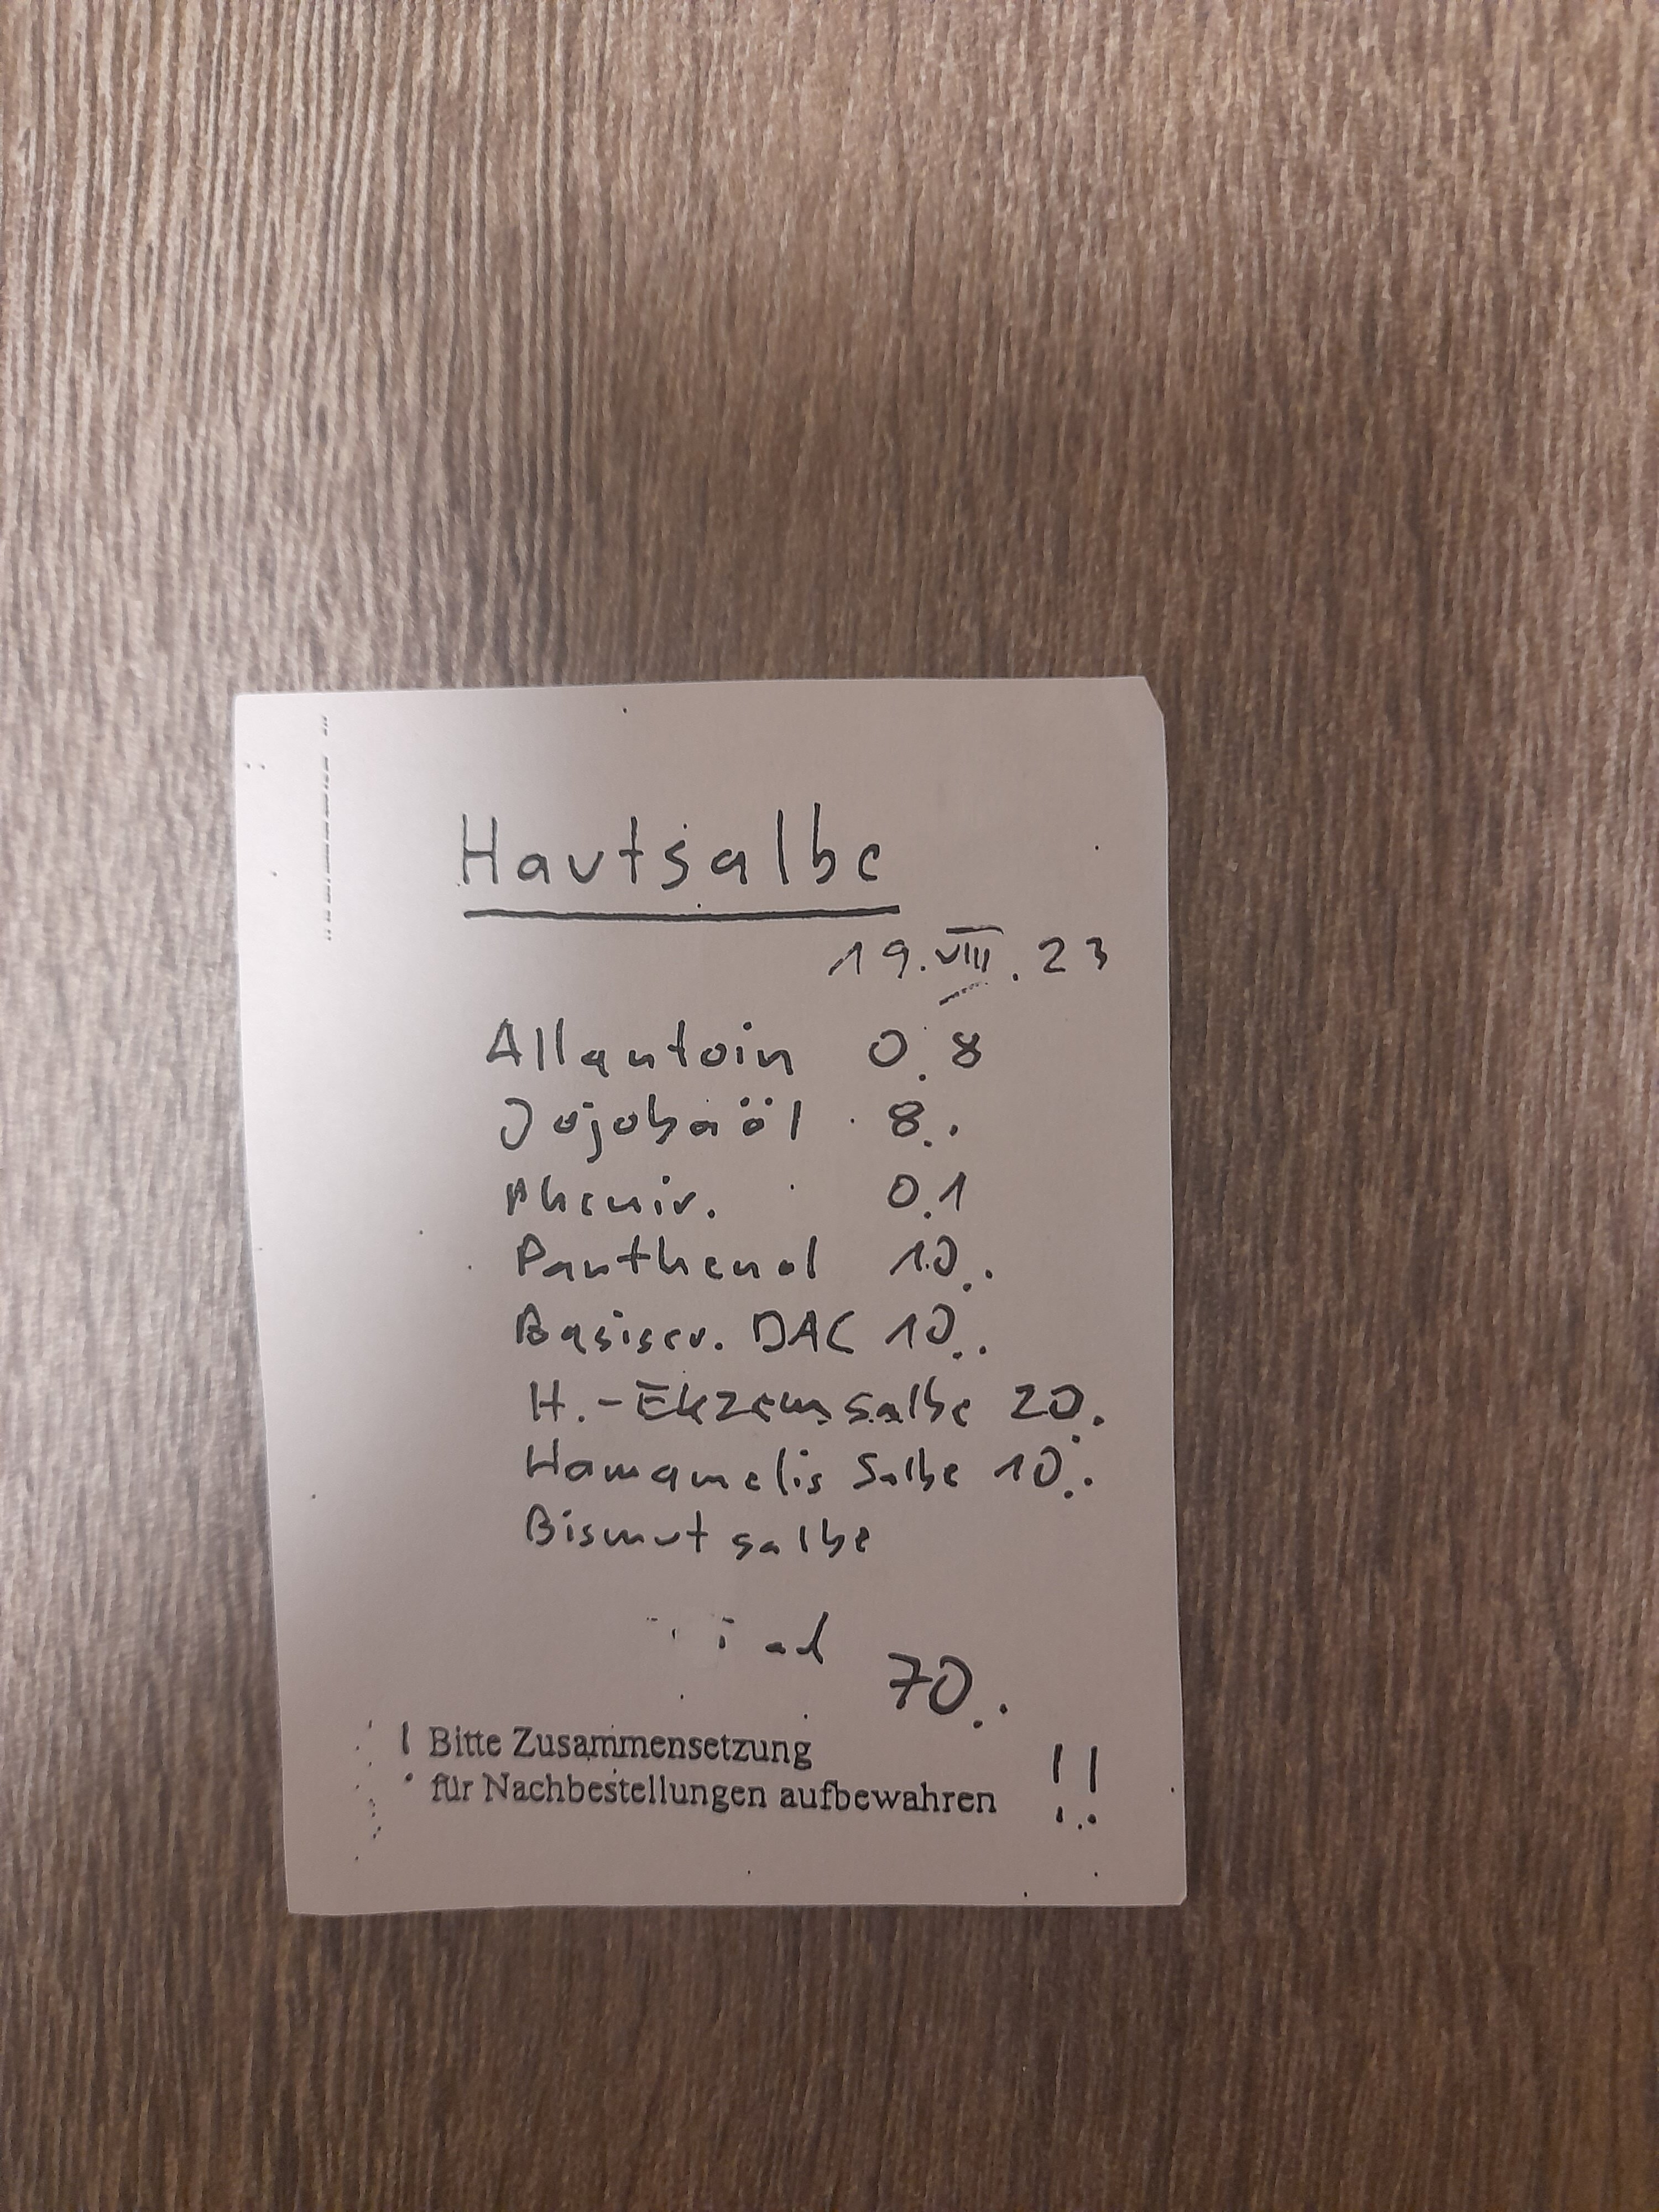 Hautsalbe
19.VIII.23
Allantoin 0.8
Jojobaöl 8..
Phenir. 0.1
Panthenol 10..
Basiscr. DAC 10..
H.-Ekzemsalbe 20.
Hamamelis Salbe 10..
Bismutsalbe
ad
70..
! Bitte Zusammensetzung
für Nachbestellungen aufbewahren !!